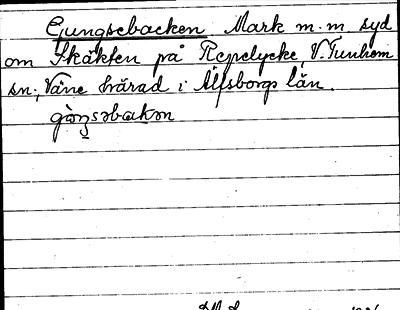 Gungsebacken Mark m.m. syd
om Skäkten på Repelycke, V. Tunhem
sn., Väne härad i Älfsborgs län.
gòŋsəbakən